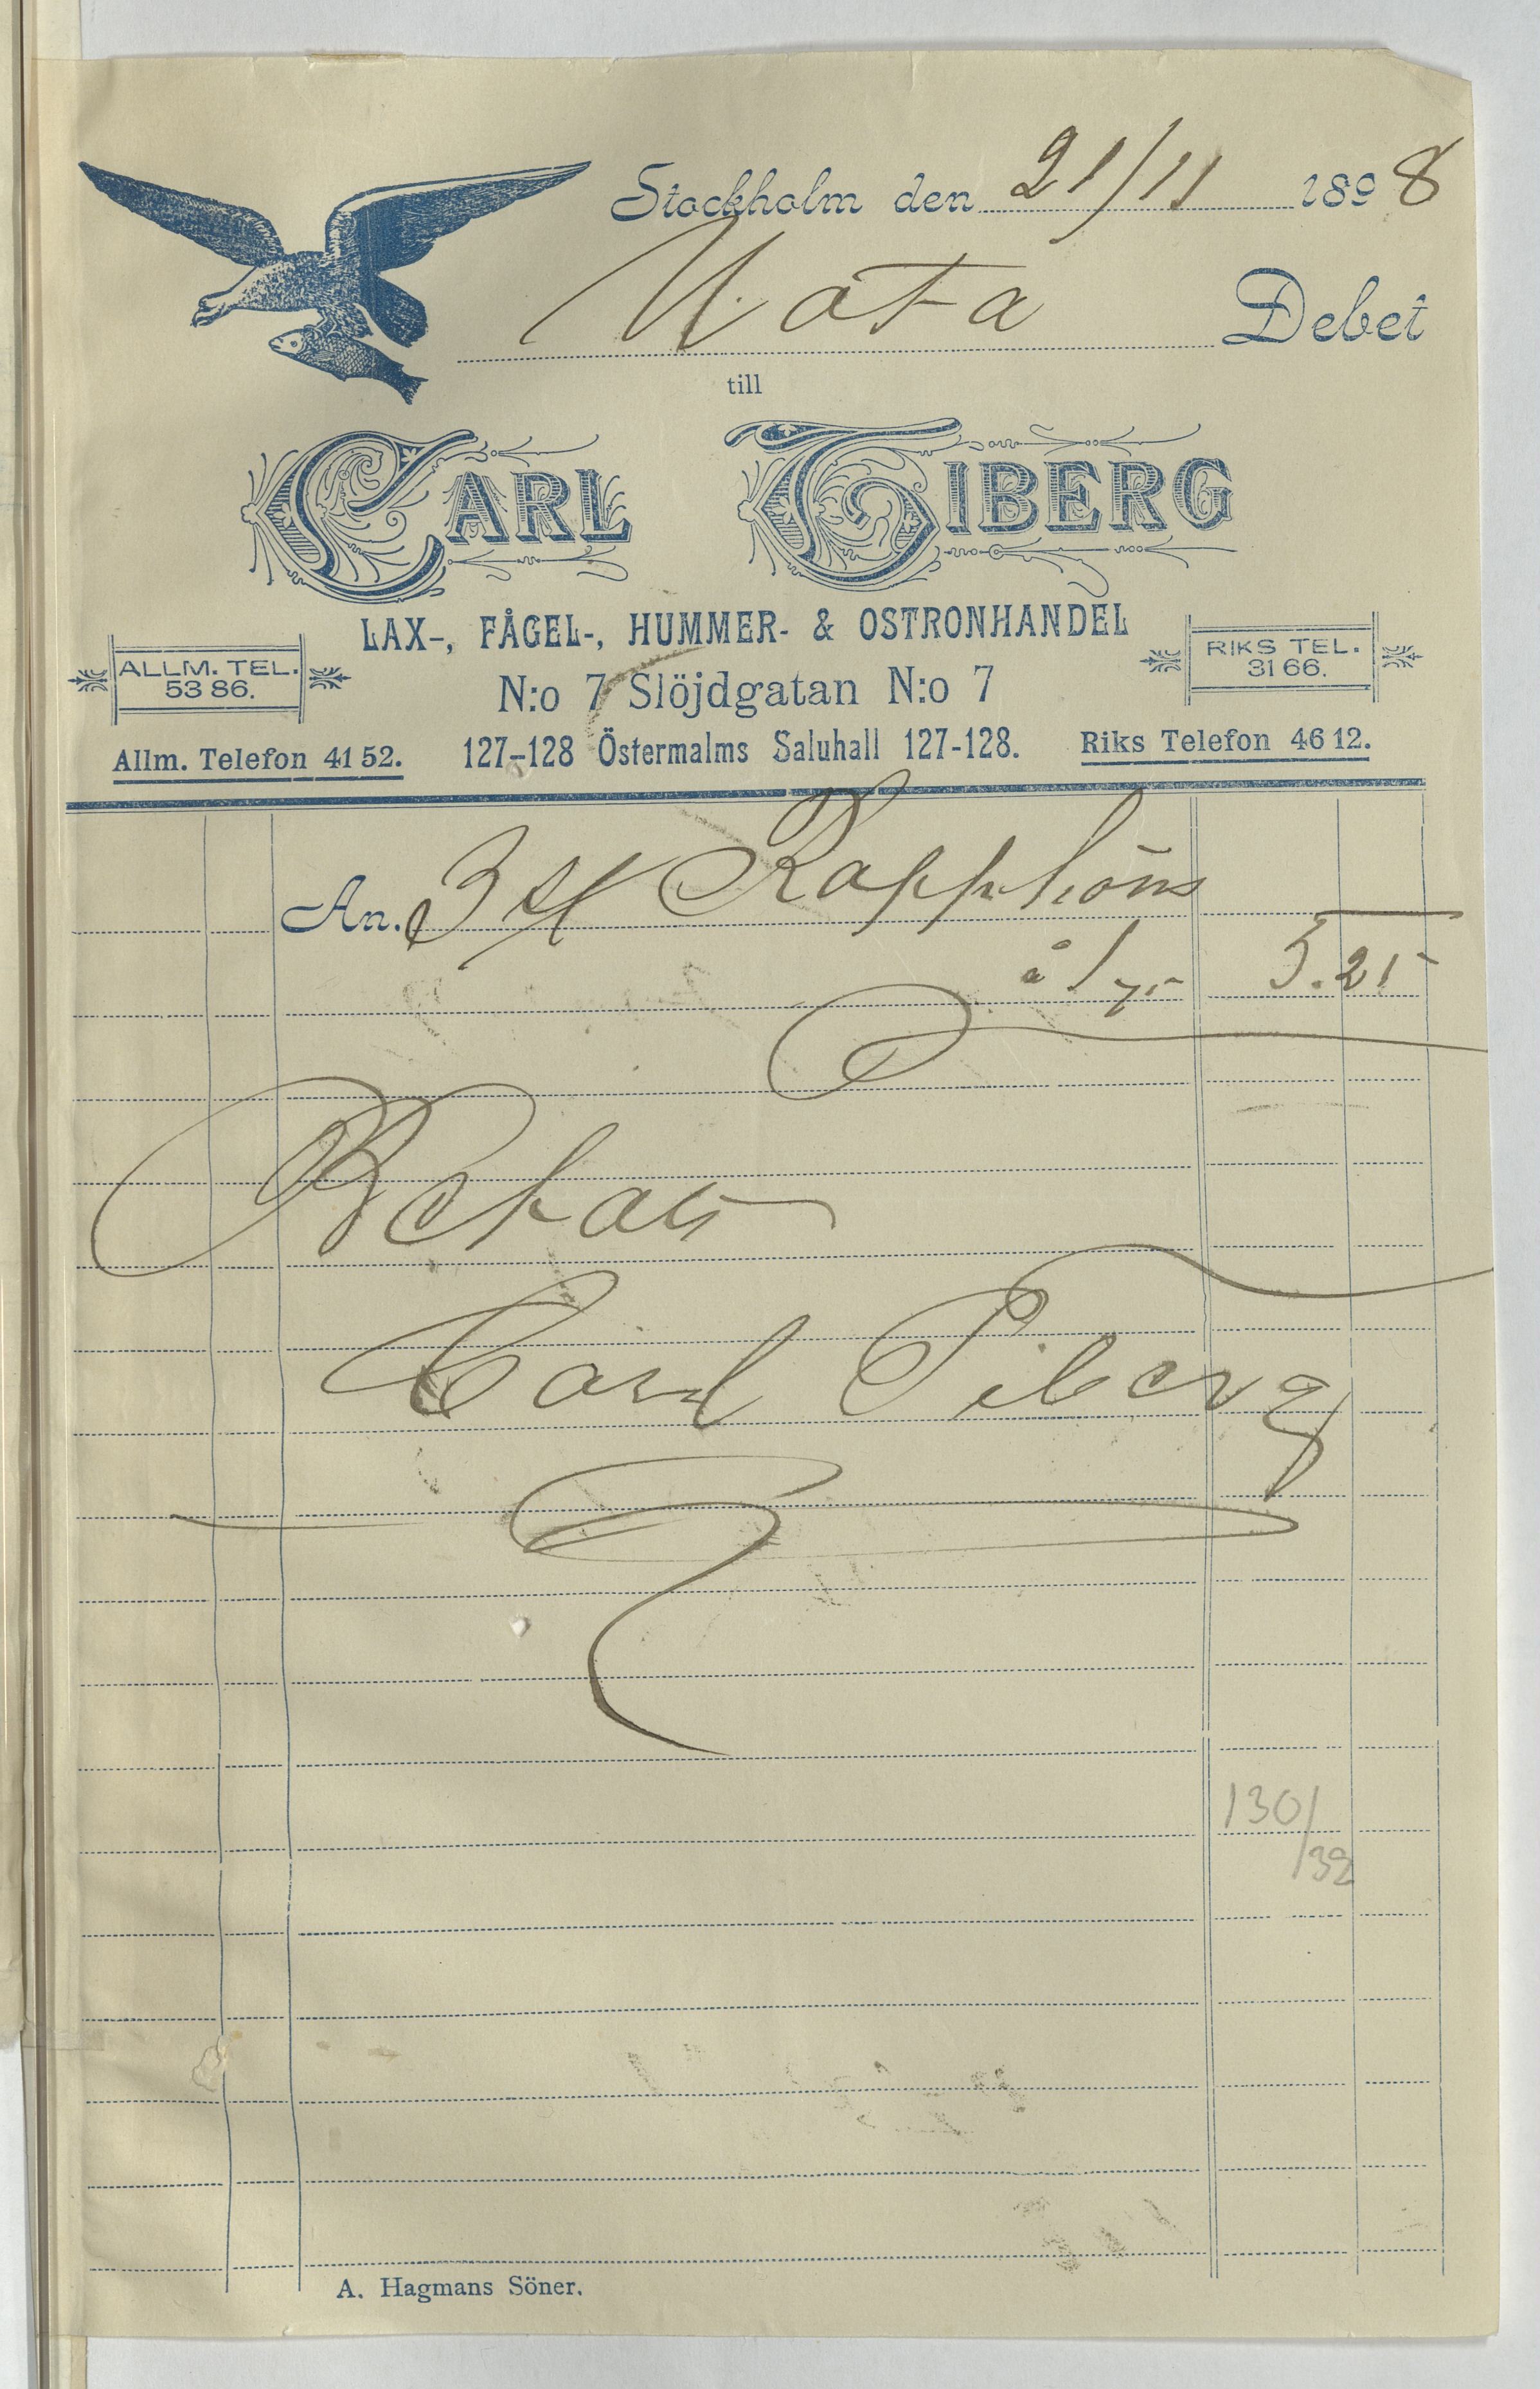 Stockholm den 21/11 1898
Nota Debet
till
CARL TIBERG
LAX-, FÅGEL-, HUMMER- & OSTRONHANDEL
ALLM. TEL. 5386.
RIKS TEL. 3166.
N:o 7 Slöjdgatan N:o 7
Allm. Telefon 4152. 127-128 Östermalms Saluhall 127-128. Riks Telefon 4612.
An. 3 st Rapphöns
à 1 75 5.25
Betalt
Carl Tiberg
130/
/32
A. Hagmans Söner.